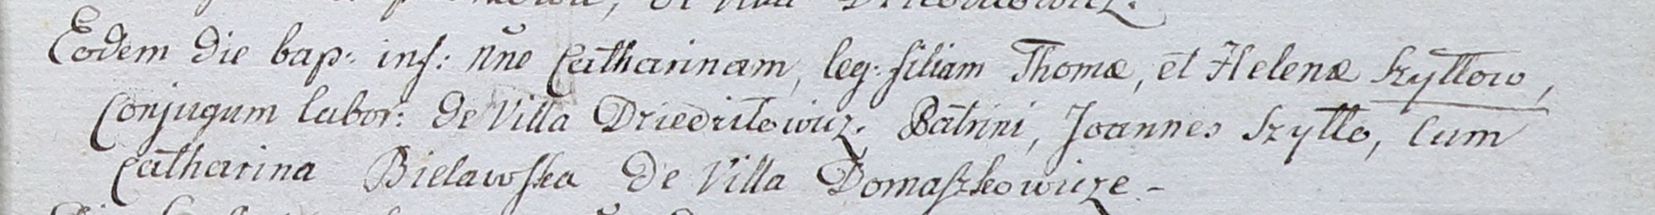 de Villa
Eodem die bap: inf: nñe Catharinam, leg: filiam Thomæ, et Helenæ Szyłłow,
Conjugum labor: de Villa Dziedziłowicz. Patrini, Joannes Szyłło, cum
Catharina Bielawska de Villa Domaszkowicze -